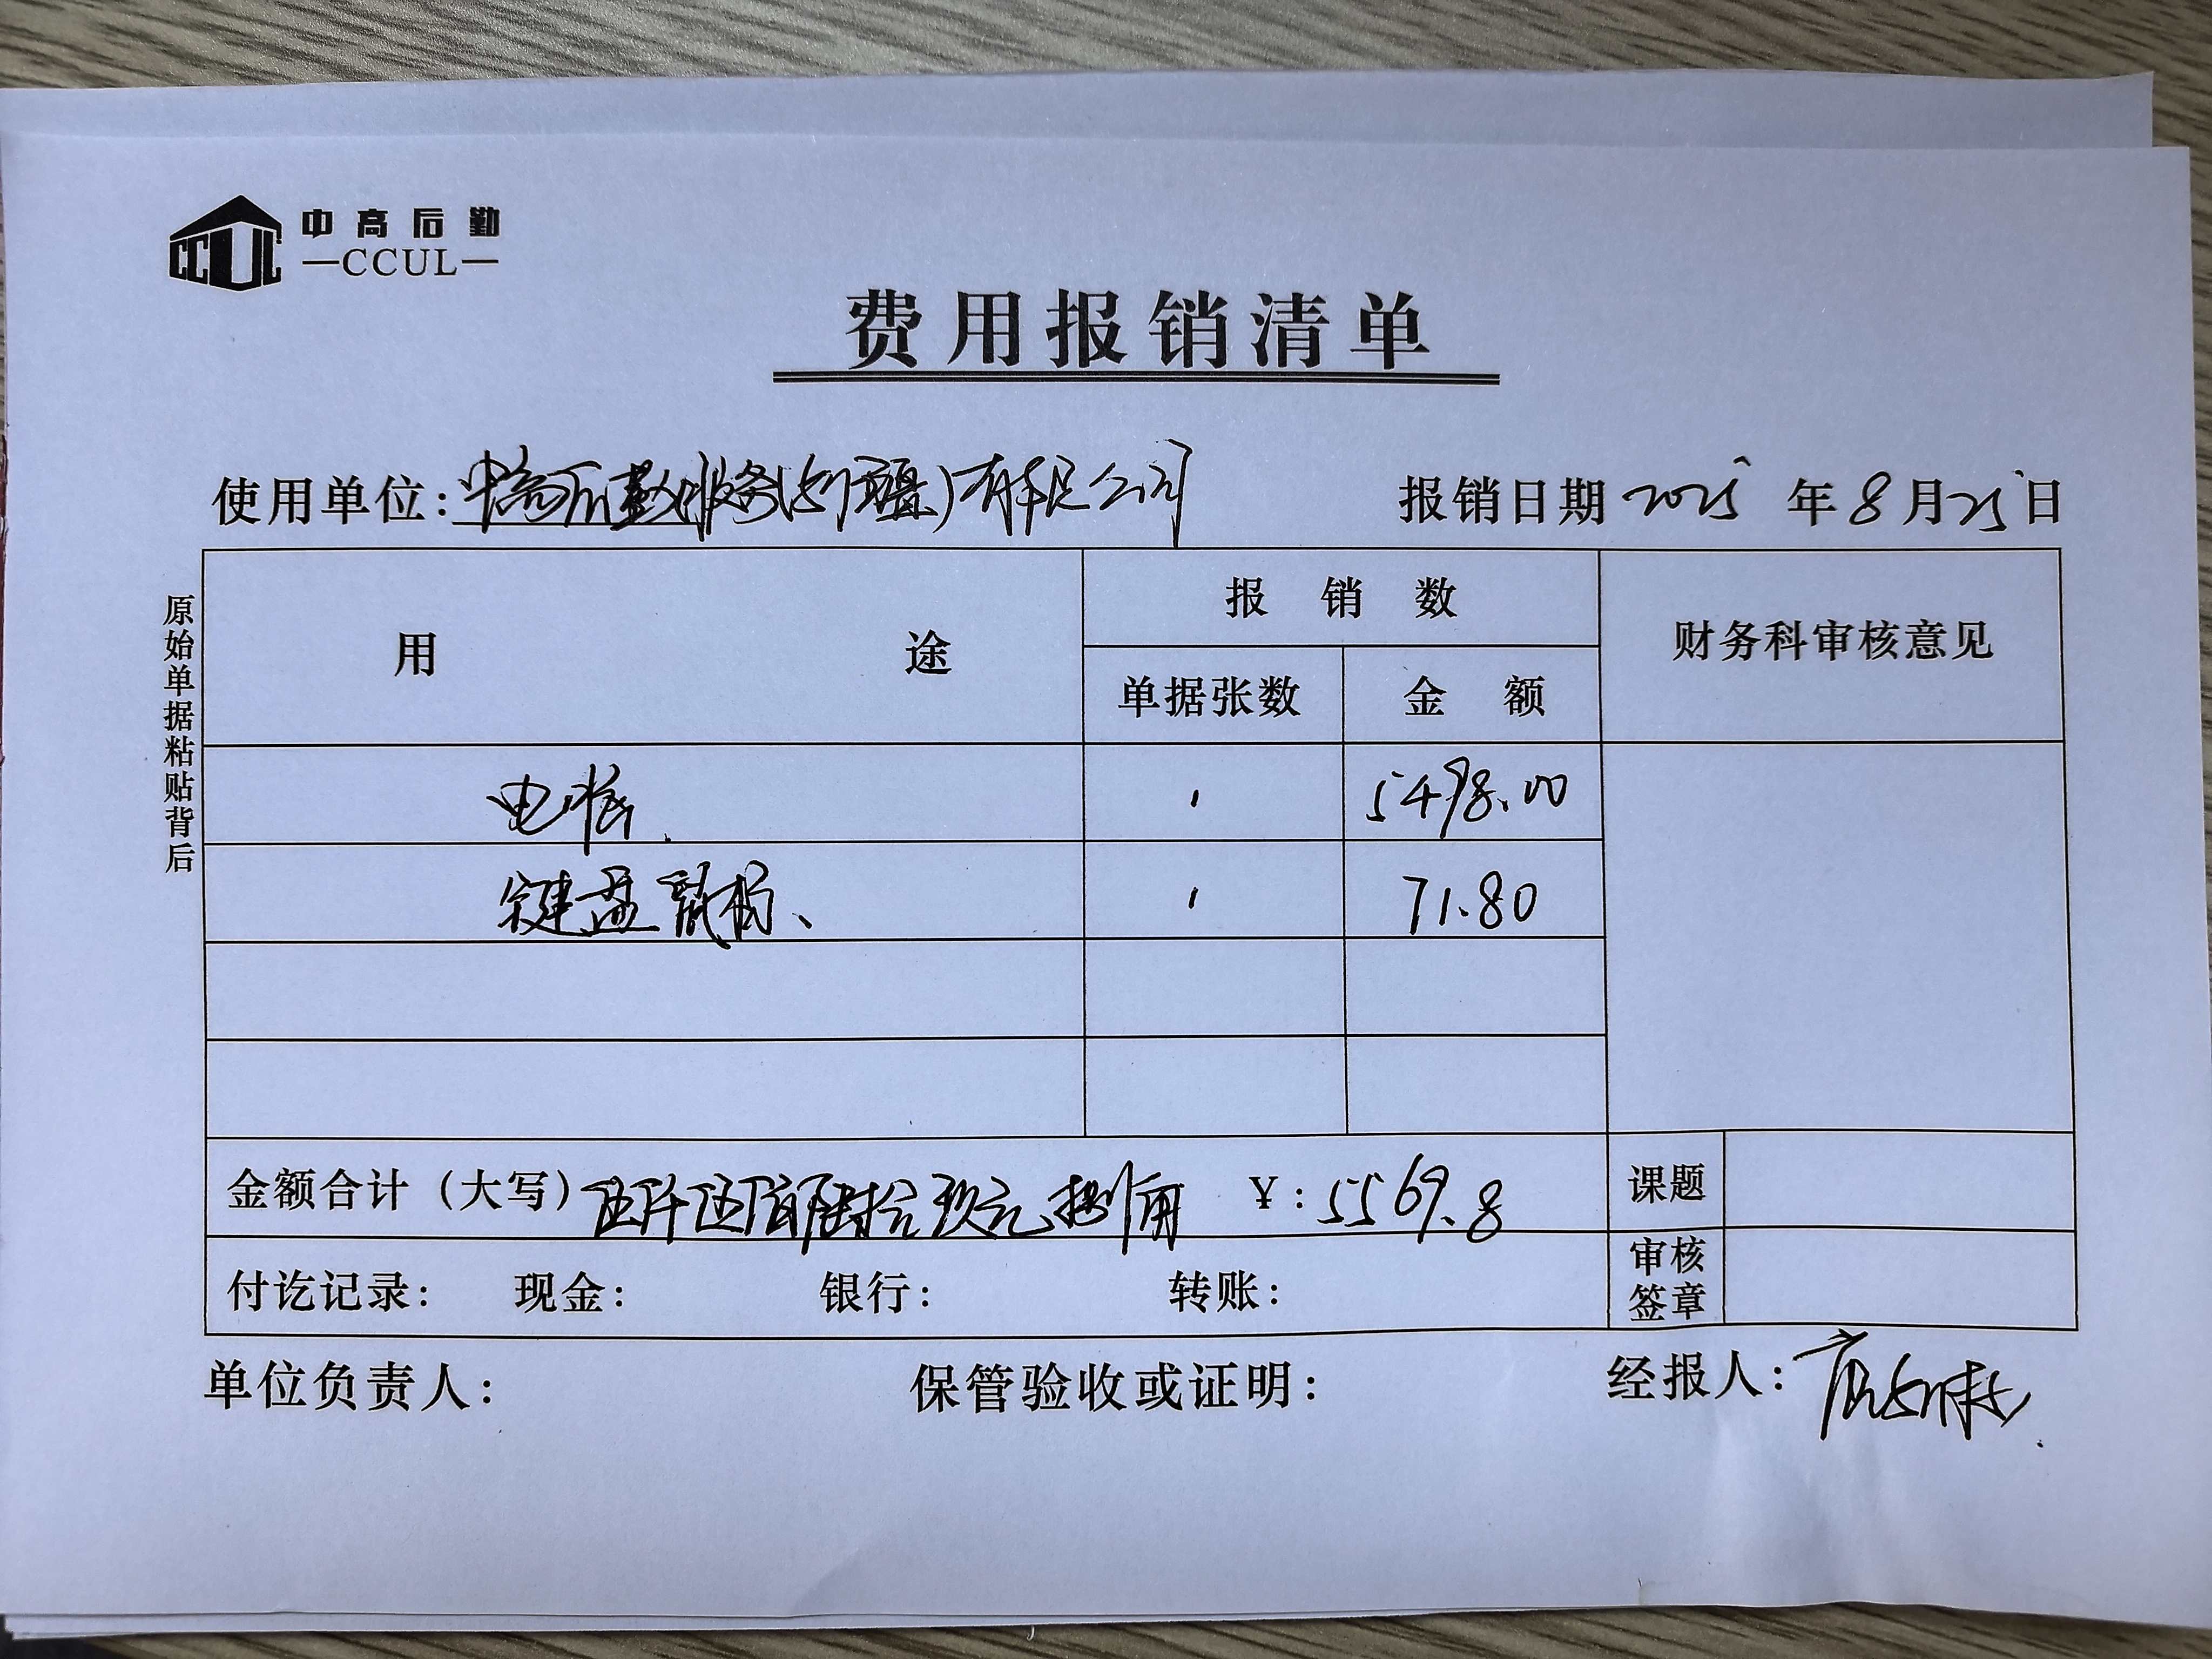 中高后勤
—CCUL—
费用报销清单
使用单位:中高后勤服务(新疆)有限公司 报销日期 2025 年 8 月 25 日
原始单据粘贴背后
用 途 报 销 数 财务科审核意见
单据张数 金 额
电脑. 1 5498.00
键盘鼠标、 1 71.80
金额合计（大写）伍仟伍佰陆拾玖元捌角 ¥:5569.8 课题
付讫记录: 现金: 银行: 转账: 审核签章
单位负责人: 保管验收或证明: 经报人: